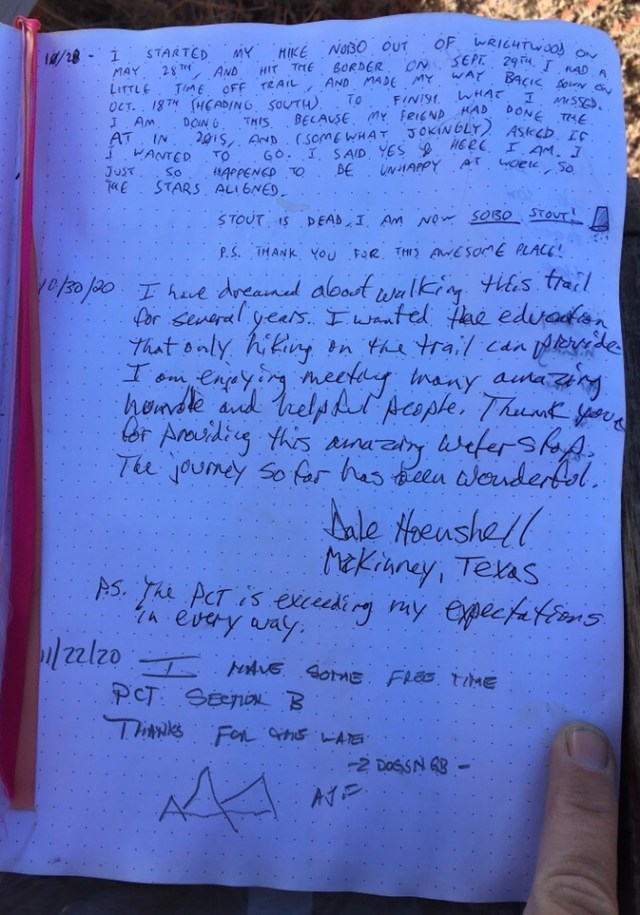 10/28 - I STARTED MY HIKE NOBO OUT OF WRIGHTWOOD ON
MAY 28TH, AND HIT THE BORDER ON SEPT. 29TH. I HAD A
LITTLE TIME OFF TRAIL, AND MADE MY WAY BACK DOWN ON
OCT. 18TH (HEADING SOUTH) TO FINISH WHAT I MISSED.
I AM DOING THIS BECAUSE MY FRIEND HAD DONE THE
AT IN 2015, AND (SOMEWHAT JOKINGLY) ASKED IF
I WANTED TO GO. I SAID YES & HERE I AM. I
JUST SO HAPPENED TO BE UNHAPPY AT WORK, SO
THE STARS ALIGNED.
STOUT IS DEAD, I AM NOW SOBO STOUT!
P.S. THANK YOU FOR THIS AWESOME PLACE!
10/30/20 I have dreamed about walking this trail
for several years. I wanted the education
that only hiking on the trail can provide
I am enjoying meeting many amazing
humble and helpful people. Thank you
for providing this amazing water stop.
The journey so far has been wonderful.
Dale Hoenshell
McKinney, Texas
P.S. The PCT is exceeding my expectations
in every way.
11/22/20 I HAVE SOME FREE TIME
PCT SECTION B
THANKS FOR THIS
AJF